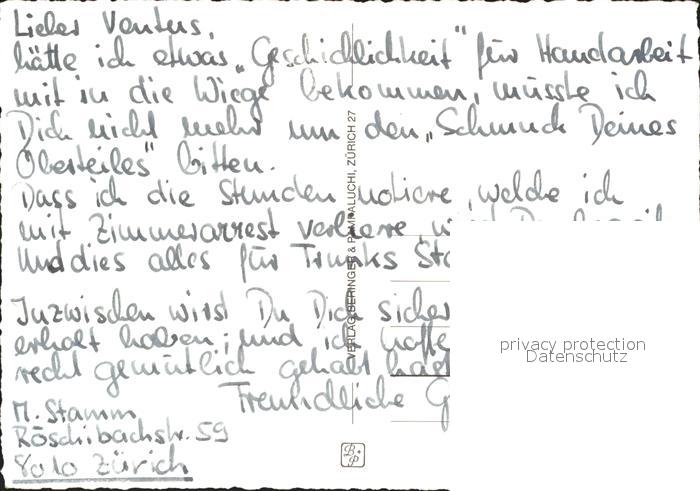 Lieber Ventus,
hätte ich etwas „Geschicklichkeit" für Handarbeit
mit in die Wiege bekommen, müsste ich
Dich nicht mehr um den „Schmuck Deines
Oberteiles" bitten.
Dass ich die Stunden notiere, welche ich
mit Zimmerarrest verliere,
Und dies alles für
Inzwischen wirst Du Dich sicher
erholt haben; und ich hoffe
recht gemütlich gehabt
Freundliche G
M. Stamm
Röschibachstr. 59
8010 Zürich
VERLAG BERINGER & PAMPALUCHI, ZÜRICH 27
B+P
privacy protection
Datenschutz